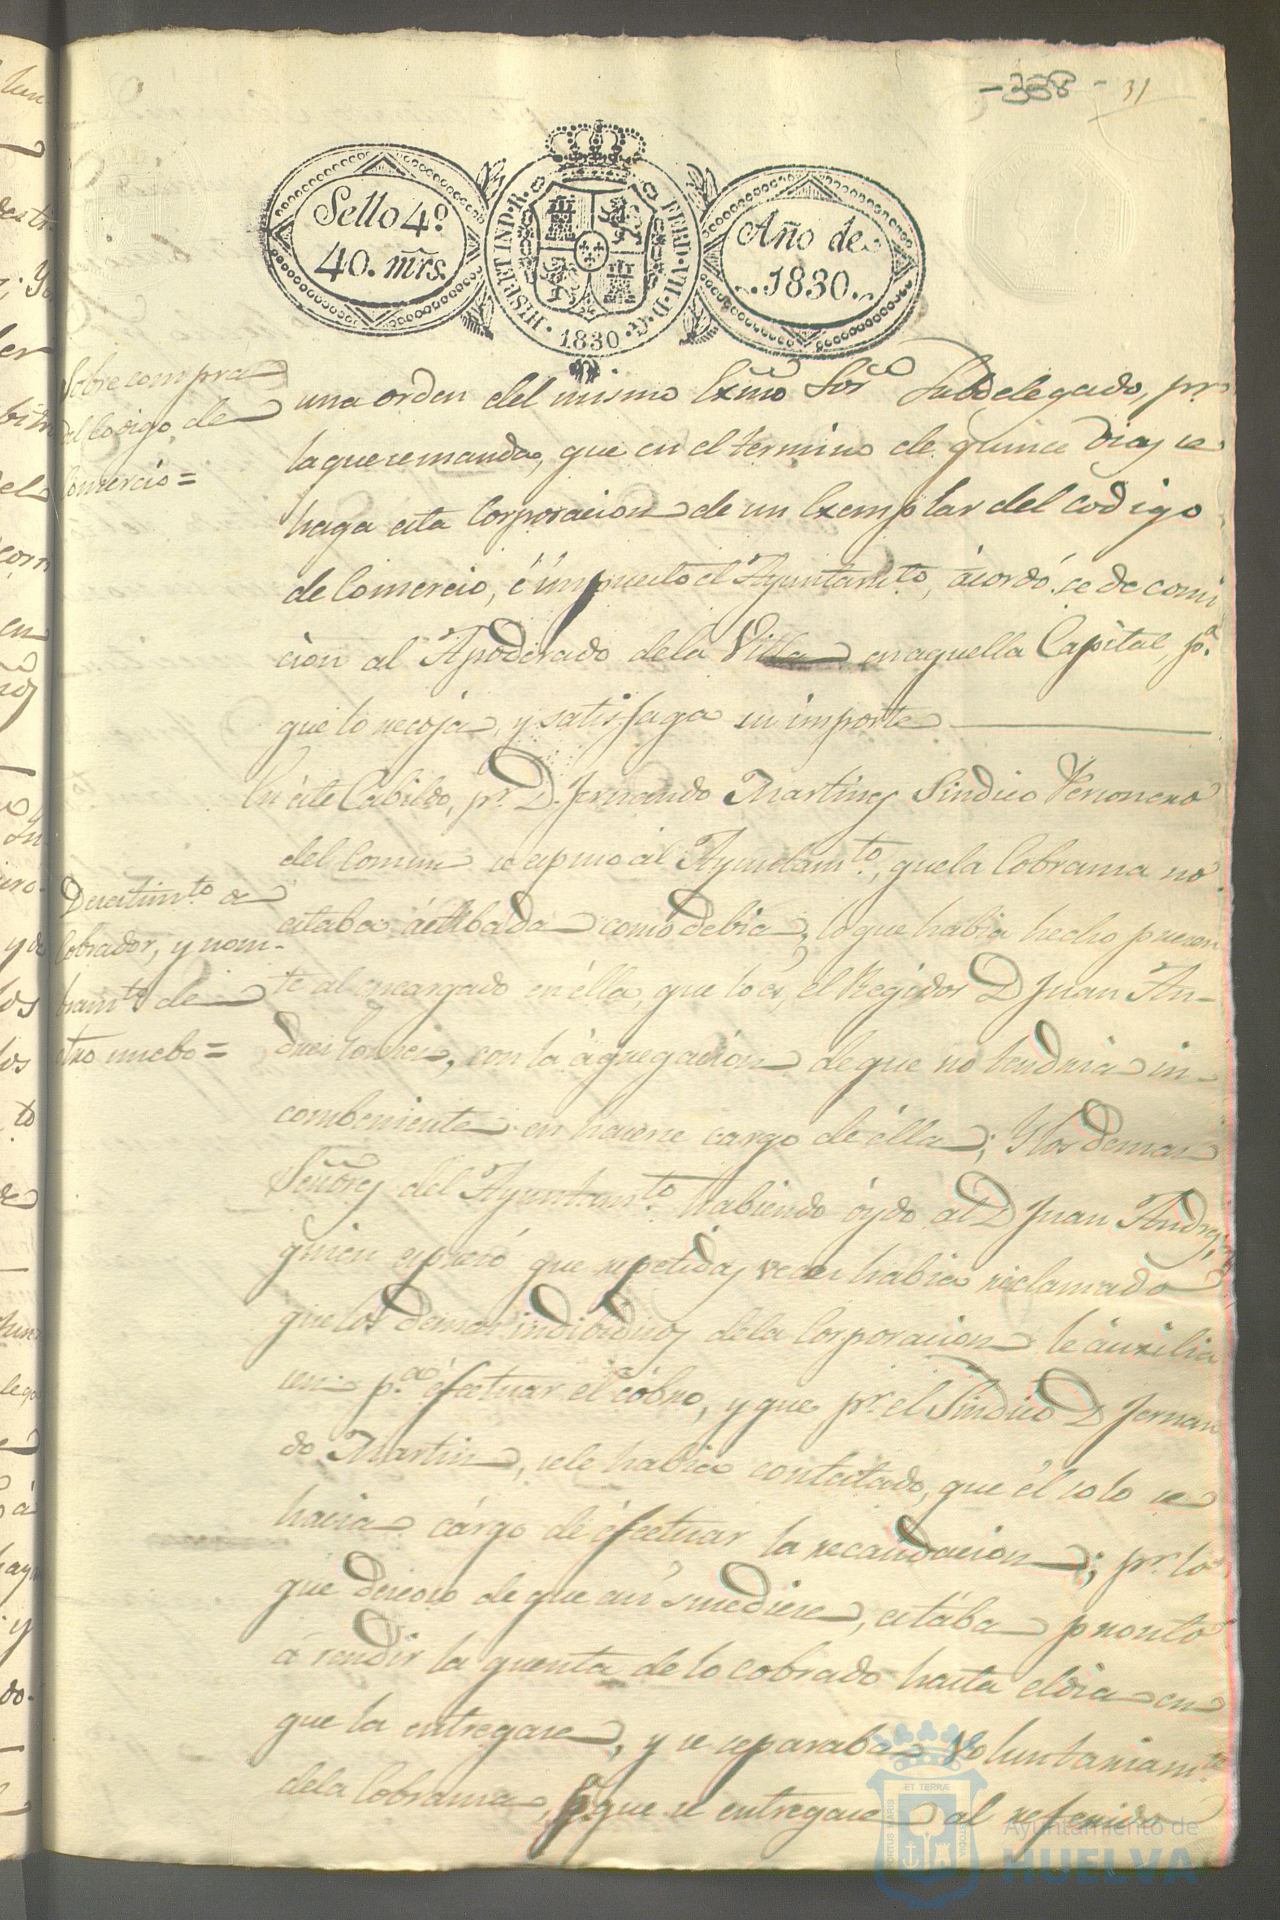 -338- 31
Sello 4º
40. mrs.
HISP. ET IND. R. FERD. VII. D. G.
1830
Año de
1830.
Sobre compra
del Codigo de
Comercio=
una orden del mismo Exmo Sor Subdelegado, pr.
la que se manda, que en el termino de quince dias se
haga esta Corporacion de un Exemplar del Codigo
de Comercio, é impuesto el Ayuntamto, ácordó se de comi
cion al Apoderado de la Villa en aquella Capital, pa.
que lo recoja, y satisfaga su importe
En éste Cabildo, pr. D. Fernando Martines Sindico Personero
del Comun se espuso al Ayuntamto, que la Cobransa no
estaba áctibada como debia, lo que habia hecho presen
te al encargado en élla, que lo és, el Regidor D Juan An-
dres Torres, con la ágregacion de que no tendria in-
combeniente en hacerse cargo de élla; Y los demas
Señores del Ayuntamto habiendo óydo al D Juan Andres,
quien espresó que repetidas veces habia reclamado
que los demas individuos de la Corporacion le áuxilia
sen pa. éfectuar el cóbro, y que pr. el Sindico D Fernan
do Martin, se le habia contestado, que él solo se
hacia cárgo de éfectuar la recaudacion; pr. lo
que deseoso de que así subediese, estába pronto
á rendir la quenta de lo cobrado hasta el dia en
que la entregase, y se separaba Voluntariamte
de la Cobransa, pa. que se entregase al referido
Desestimto de
Cobrador, y nom-
bramto de
otro nuebo=
PORTUS MARIS ET TERRÆ CUSTODIA
Ayuntamiento de
HUELVA